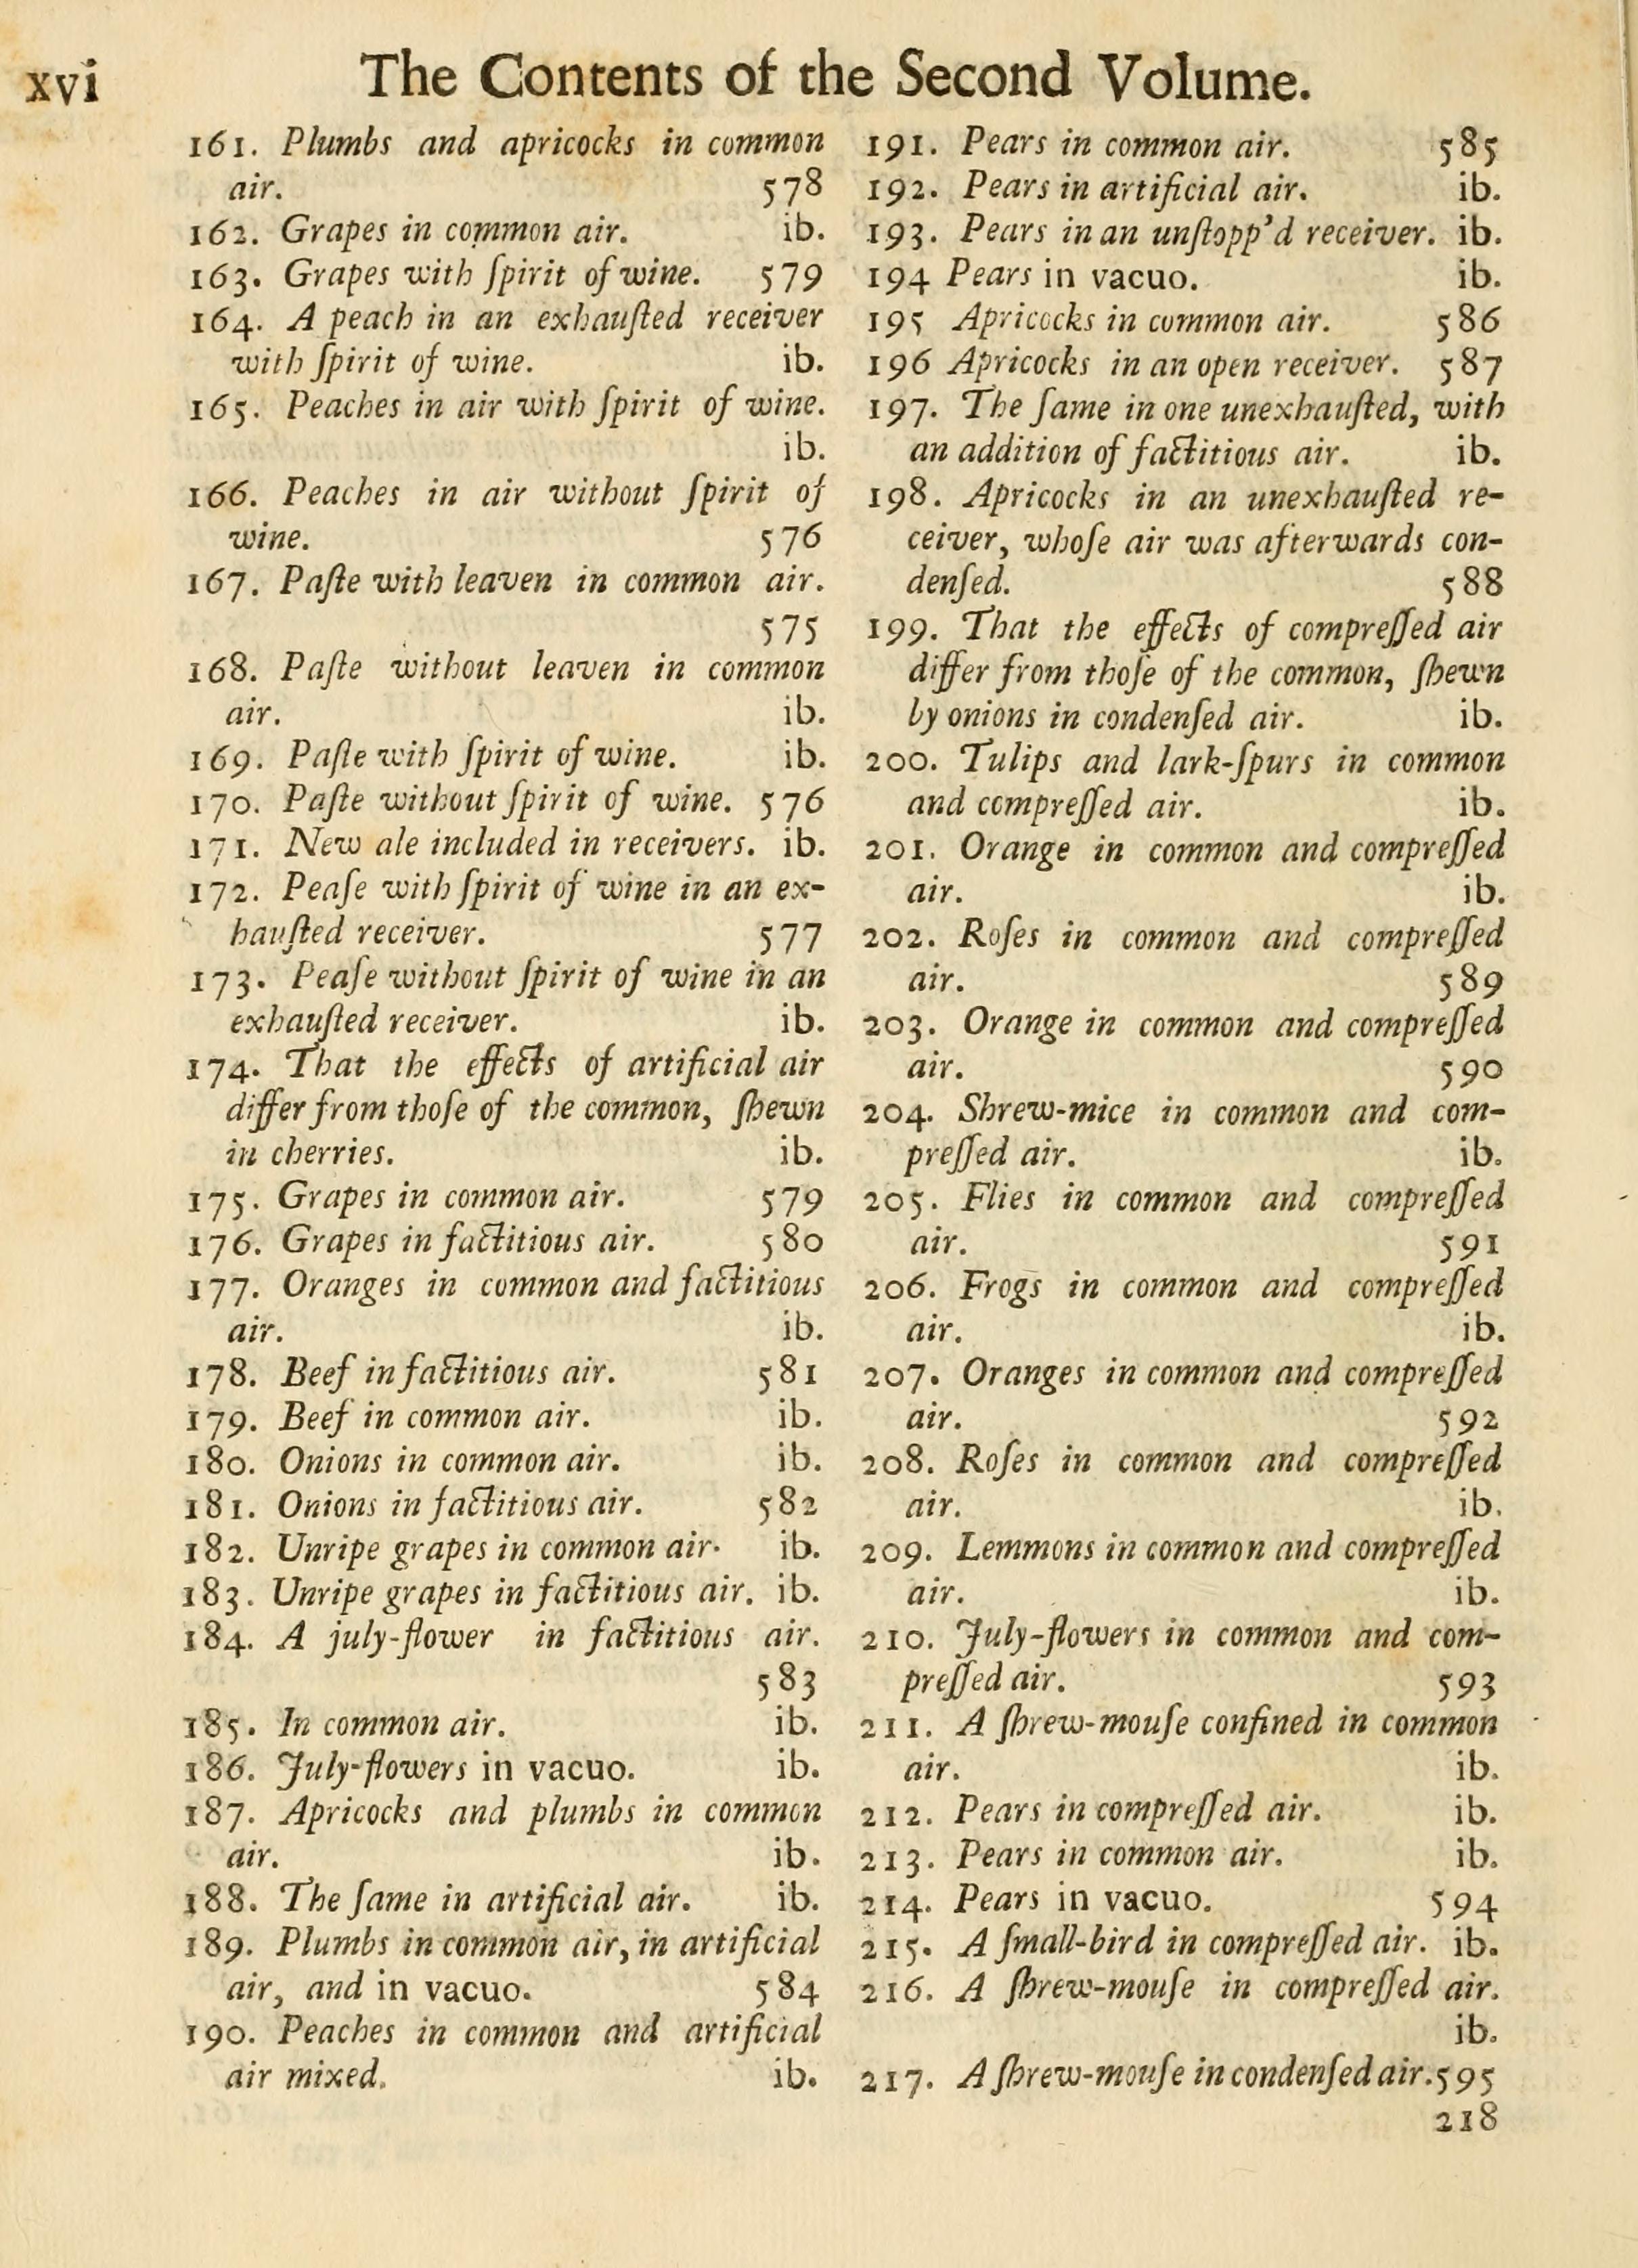 xvi
The Contents of the Second Volume.
161. Plumbs and apricocks in common
air. 578
162. Grapes in common air. ib.
163. Grapes with ſpirit of wine. 579
164. A peach in an exhauſted receiver
with ſpirit of wine. ib.
165. Peaches in air with ſpirit of wine.
ib.
166. Peaches in air without ſpirit of
wine. 576
167. Paſte with leaven in common air.
575
168. Paſte without leaven in common
air. ib.
169. Paſte with ſpirit of wine. ib.
170. Paſte without ſpirit of wine. 576
171. New ale included in receivers. ib.
172. Peaſe with ſpirit of wine in an ex-
hauſted receiver. 577
173. Peaſe without ſpirit of wine in an
exhauſted receiver. ib.
174. That the effects of artificial air
differ from thoſe of the common, ſhewn
in cherries. ib.
175. Grapes in common air. 579
176. Grapes in factitious air. 580
177. Oranges in common and factitious
air. ib.
178. Beef in factitious air. 581
179. Beef in common air. ib.
180. Onions in common air. ib.
181. Onions in factitious air. 582
182. Unripe grapes in common air. ib.
183. Unripe grapes in factitious air. ib.
184. A july-flower in factitious air.
583
185. In common air. ib.
186. July-flowers in vacuo. ib.
187. Apricocks and plumbs in common
air. ib.
188. The ſame in artificial air. ib.
189. Plumbs in common air, in artificial
air, and in vacuo. 584
190. Peaches in common and artificial
air mixed. ib.
191. Pears in common air. 585
192. Pears in artificial air. ib.
193. Pears in an unſtopp'd receiver. ib.
194 Pears in vacuo. ib.
195 Apricocks in common air. 586
196 Apricocks in an open receiver. 587
197. The ſame in one unexhauſted, with
an addition of factitious air. ib.
198. Apricocks in an unexhauſted re-
ceiver, whoſe air was afterwards con-
denſed. 588
199. That the effects of compreſſed air
differ from thoſe of the common, ſhewn
by onions in condenſed air. ib.
200. Tulips and lark-ſpurs in common
and compreſſed air. ib.
201. Orange in common and compreſſed
air. ib.
202. Roſes in common and compreſſed
air. 589
203. Orange in common and compreſſed
air. 590
204. Shrew-mice in common and com-
preſſed air. ib.
205. Flies in common and compreſſed
air. 591
206. Frogs in common and compreſſed
air. ib.
207. Oranges in common and compreſſed
air. 592
208. Roſes in common and compreſſed
air. ib.
209. Lemmons in common and compreſſed
air. ib.
210. July-flowers in common and com-
preſſed air. 593
211. A ſhrew-mouſe confined in common
air. ib.
212. Pears in compreſſed air. ib.
213. Pears in common air. ib.
214. Pears in vacuo. 594
215. A ſmall-bird in compreſſed air. ib.
216. A ſhrew-mouſe in compreſſed air.
ib.
217. A ſhrew-mouſe in condenſed air. 595
218